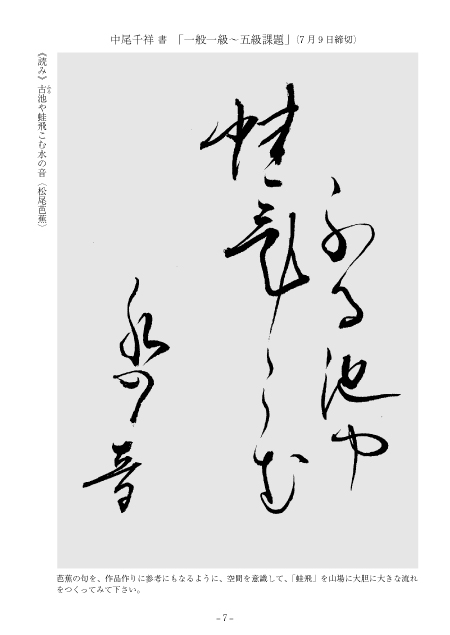 中尾千祥 書 「一般一級～五級課題」(7月9日締切)
《読み》古池や蛙飛こむ水の音〈松尾芭蕉〉
ふる
ふる池や
蛙飛こむ
水の音
芭蕉の句を、作品作りに参考にもなるように、空間を意識して、「蛙飛」を山場に大胆に大きな流れ
をつくってみて下さい。
－7－